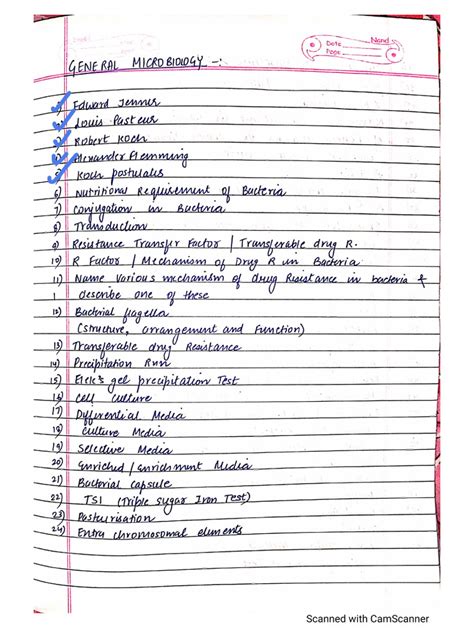 Date
Page
GENERAL MICROBIOLOGY -:
1) Edward Jenner
2) Louis Pasteur
3) Robert Koch
4) Alexander Flemming
5) Koch postulates
6) Nutritional Requirement of Bacteria
7) Conjugation in Bacteria
8) Transduction
9) Resistance Transfer Factor / Transferable drug R.
10) R Factor / Mechanism of Drug R in Bacteria
11) Name Various mechanism of drug Resistance in bacteria &
describe one of these
12) Bacterial flagella
(structure, arrangement and Function)
13) Transferable drug Resistance
14) Precipitation
15) gel precipitation Test
16) Cell Culture
17) Differential Media
18) Culture Media
19) Selective Media
20) Enriched / enrichment Media
21) Bacterial capsule
22) TSI (Triple sugar Iron Test)
23) Pasteurisation
24) Extra chromosomal elements
Scanned with CamScanner